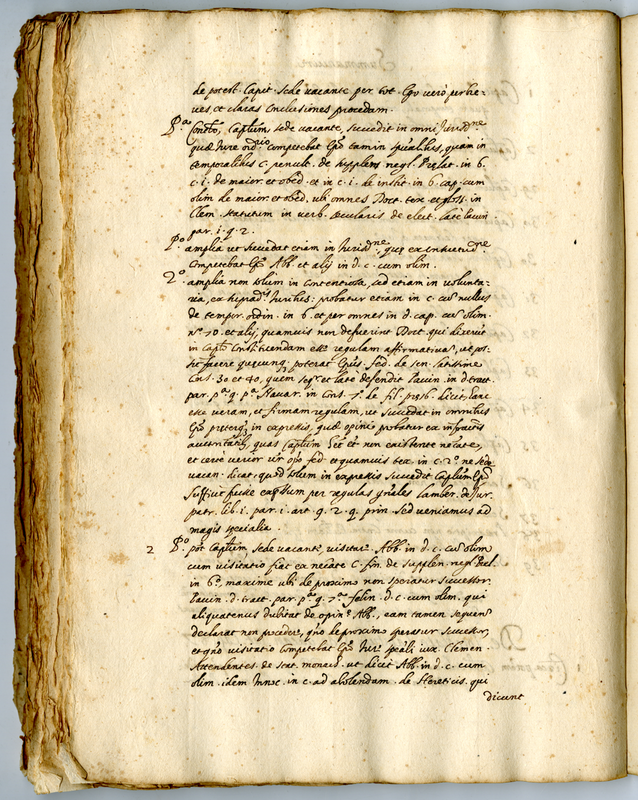 de potest. Capit. sede vacante per tot. Ego verò per bre-
ves et claras Conclusiones procedam.
P.ª Concl.º, Cap̃tum sede vacante, succedit in omni Jurisd.ne
quæ Jure ord.rio competebat Ep̃o tam in sp̃ualibus, quam in
temporalibus c. penult. de supplen. negl. Prelat. in 6.
c. i. de maior. et obed. et in c. i. de instit. in 6. cap. cum
olim de maior. et obed. ubi omnes Doct. tex. et gloss. in
Clem. statutum in verb. secularis de elect. late
par. i. q. 2.
P.º amplia ut succedat etiam in Jurisd.ne, quæ ex consuetud.ne
competebat Ep̃o Abb. et alij in d. c. cum olim.
2.º amplia non solum in contentiosa, sed etiam in volunta-
ria, probatur etiam in c. cum nullus
de tempor. ordin. in 6. et per omnes in d. cap. cum olim.
n.º 10. et alij, quamvis non defuerint Doct. qui dixerint
in Cap̃to constituendam esse regulam affirmativam, ut pos-
sit facere quęcunq. poterat Ep̃us. fed. de sen. latissime
Cons. 30 et 40, quem seq.r et latè defendit in d. tract.
par. p.ª q. p.ª Navar. in Cons. de fil. dicit, hanc
esse veram, et firmam regulam, ut succedat in omnibus
Ep̃o in expressis, quæ opinio probatur ex infra.tis
auctoritatib, quas Cap̃tum non existente necate,
et certè verior ur op.o fed. et quamvis tex. in c. 2.º ne sede
vacan. dicat, quod solum in expressis succedit Cap̃tum Ep̃o
suffivit fuisse exp̃ssum per regulas g̃nales Lamber. de Jur.
patr. lib. i. par. i. art. 9. 2. q. prin. sed veniamus ad
magis specialia.
2 P.º põt Cap̃tum, sede vacante, visitare. Abb. in d. c. cum olim
cum visitatio fiat ex necate C. fin. de supplen. negl. Prel.
in 6.º, maxime ubi de proximo non speratur successor.
d. tract. par. p.ª q. 7.ª felin. d. c. cum olim. qui
aliquatenus dubitat de opin.e Abb., eam tamen sequens
declarat non procedere, q̃ño de proximo speratur successor,
et q̃ño visitatio competebat Ep̃o Jure sp̃ali iux. Clemen.
Attendentes. de stat. monach. ut dicit Abb. in d. c. cum
olim. idem Innoc. in c. ad abolendam. de Hereticis. qui
dicunt